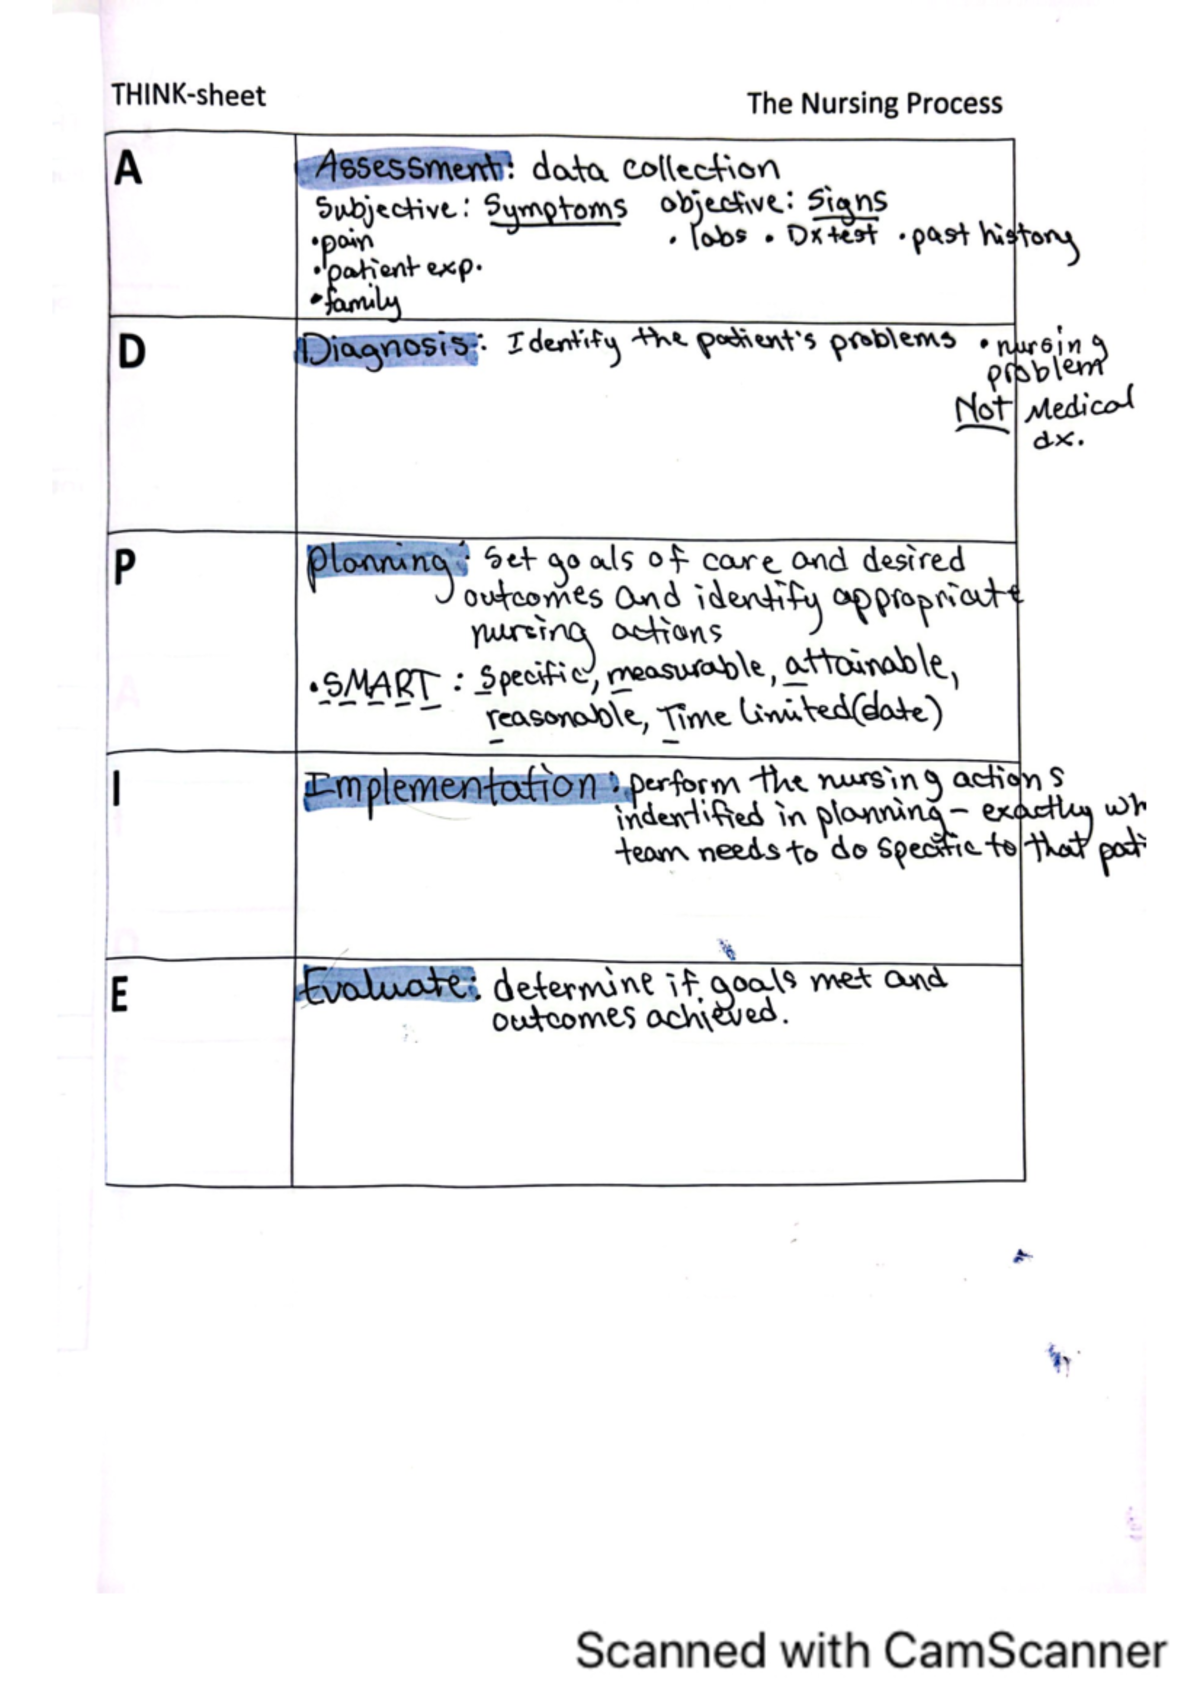 THINK-sheet
The Nursing Process
A
Assessment: data collection
Subjective: Symptoms objective: Signs
•pain • labs • Dx test • past history
•patient exp.
•family
D
Diagnosis: Identify the patient's problems • nursing
problem
Not Medical
dx.
P
planning: set goals of care and desired
outcomes and identify appropriate
nursing actions
•SMART: Specific, measurable, attainable,
reasonable, Time limited(date)
I
Implementation: perform the nursing actions
indentified in planning - exactly wh
team needs to do specific to that pati
E
Evaluate: determine if goals met and
outcomes achieved.
Scanned with CamScanner